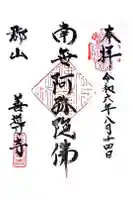 奉拝
令和六年八月十四日
南無阿弥陀佛
郡山
善導寺